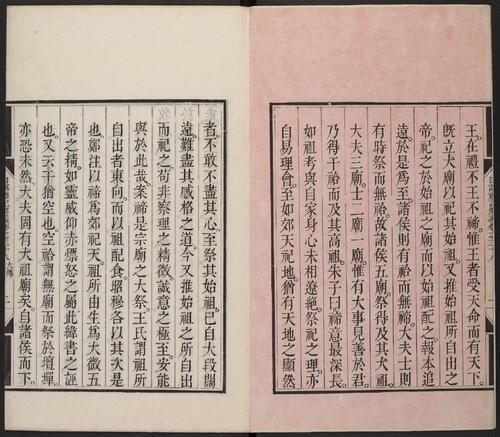 王。在禮不王不禘。惟王者受天命而有天下。
旣立大廟以祀其始祖。又推始祖所自出之
帝。祀之於始祖之廟。而以始祖配之。報本追
遠。於是爲至。諸侯則有祫而無禘。大夫士則
有時祭而無祫。故諸侯五廟。祭得及其大祖。
大夫三廟。士二廟一廟。惟有大事見善於君。
乃得干祫而及其高祖。朱子曰。禘意最深長。
如祖考與自家身心未相遼絕。祭祀之理。亦
自易理會。至如郊天祀地。猶有天地之顯然
者。不敢不盡其心。至祭其始祖。已自大段闊
遠。難盡其感格之道。今又推始祖之所自出
而祀之。苟非察理之精微。誠意之極至。安能
與於此哉。案禘是宗廟之大祭。王氏謂祖所
自出者東向。而以祖配食。昭穆各以其次是
也。鄭注以禘爲郊祀天。祖所由生爲大微五
帝之精。如靈威仰赤熛怒之屬。此緯書之誣
也。又云干猶空也。空祫謂無廟而祭於壇墠。
亦恐未然。大夫固有大祖廟矣。自諸侯而下。